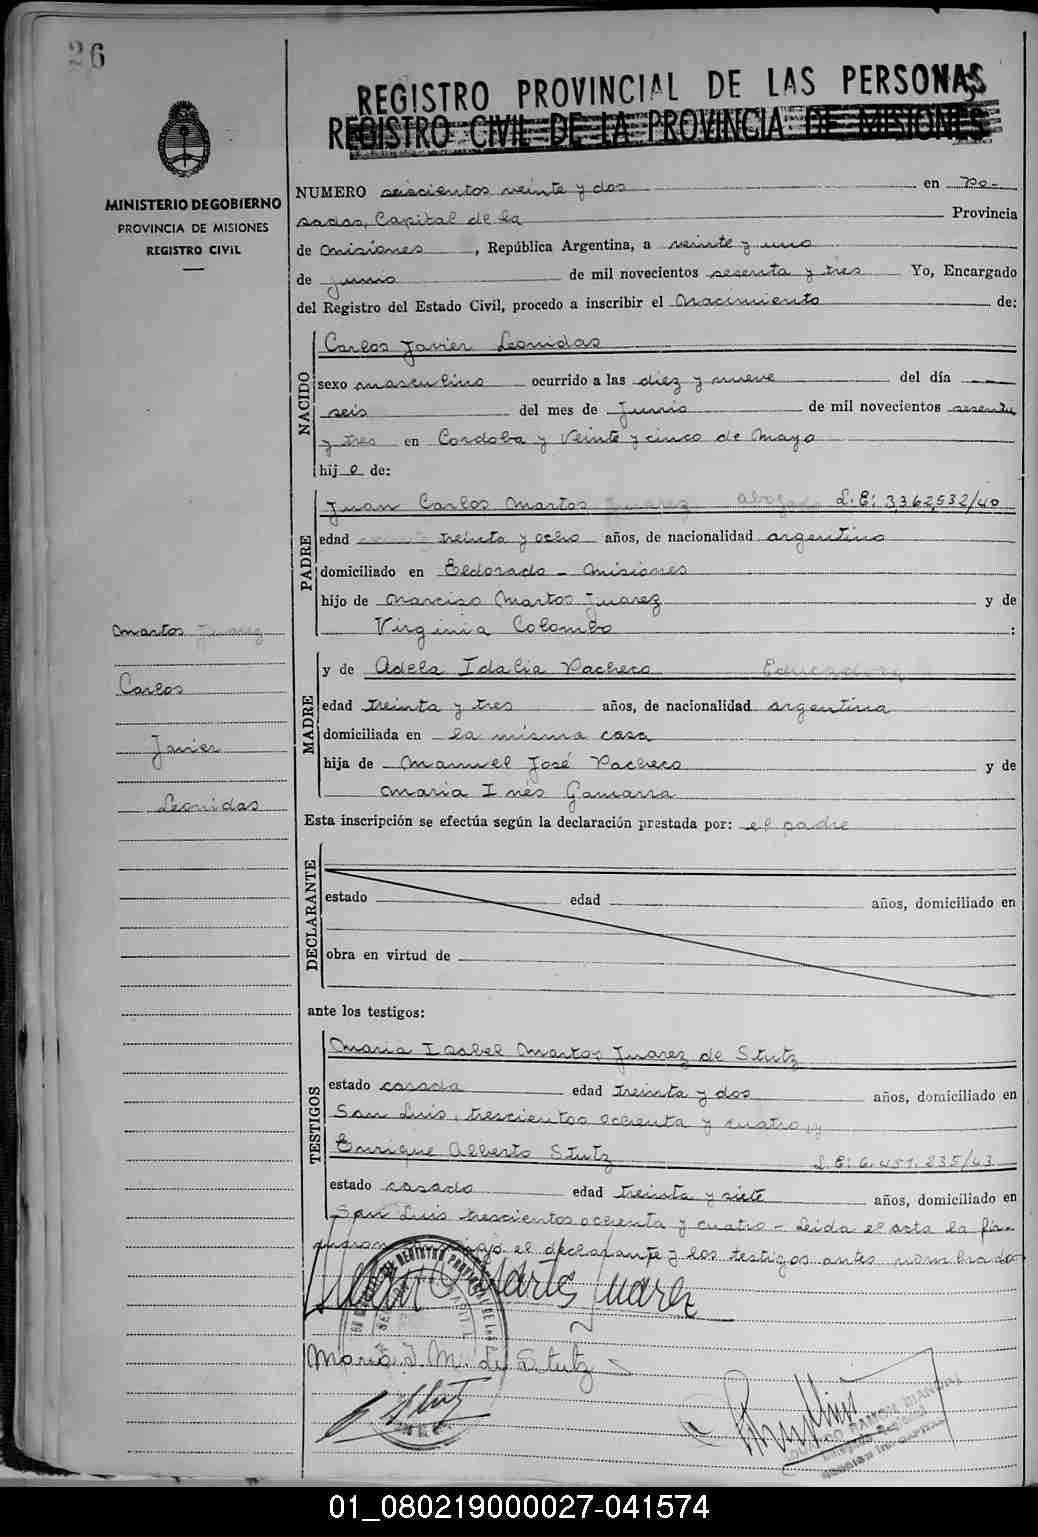 26
REGISTRO PROVINCIAL DE LAS PERSONAS
REGISTRO CIVIL DE LA PROVINCIA DE MISIONES
MINISTERIO DE GOBIERNO
PROVINCIA DE MISIONES
REGISTRO CIVIL
NUMERO seiscientos veinte y dos en Po-
sadas, Capital de la Provincia
de Misiones, República Argentina, a veinte y uno
de junio de mil novecientos sesenta y tres Yo, Encargado
del Registro del Estado Civil, procedo a inscribir el Nacimiento de:
NACIDO
Carlos Javier Leonidas
sexo masculino ocurrido a las diez y nueve del día
seis del mes de Junio de mil novecientos sesenta
y tres en Cordoba y Veinte y cinco de Mayo
hij o de:
PADRE
Juan Carlos Martos Juarez Abogado L.E: 3,362,532/40
edad treinta y ocho años, de nacionalidad argentino
domiciliado en Eldorado - Misiones
hijo de Narciso Martos Juarez y de
Virginia Colombo :
Martos Juarez
Carlos
Javier
Leonidas
MADRE
y de Adela Idalia Pacheco Educadora
edad treinta y tres años, de nacionalidad argentina
domiciliada en la misma casa
hija de Manuel José Pacheco y de
Maria Inés Gamarra
Esta inscripción se efectúa según la declaración prestada por: el padre
DECLARANTE
estado edad años, domiciliado en
obra en virtud de
ante los testigos:
TESTIGOS
Maria Isabel Martos Juarez de Stutz
estado casada edad treinta y dos años, domiciliado en
San Luis, trescientos ochenta y cuatro, y
Enrique Alberto Stutz L.E: 6.451.235/43
estado casado edad treinta y siete años, domiciliado en
San Luis trescientos ochenta y cuatro - Leida el acta la fir-
el declarante y los testigos antes nombrado
Juan C Martos Juarez
Maria I. M. de Stutz
01_080219000027-041574